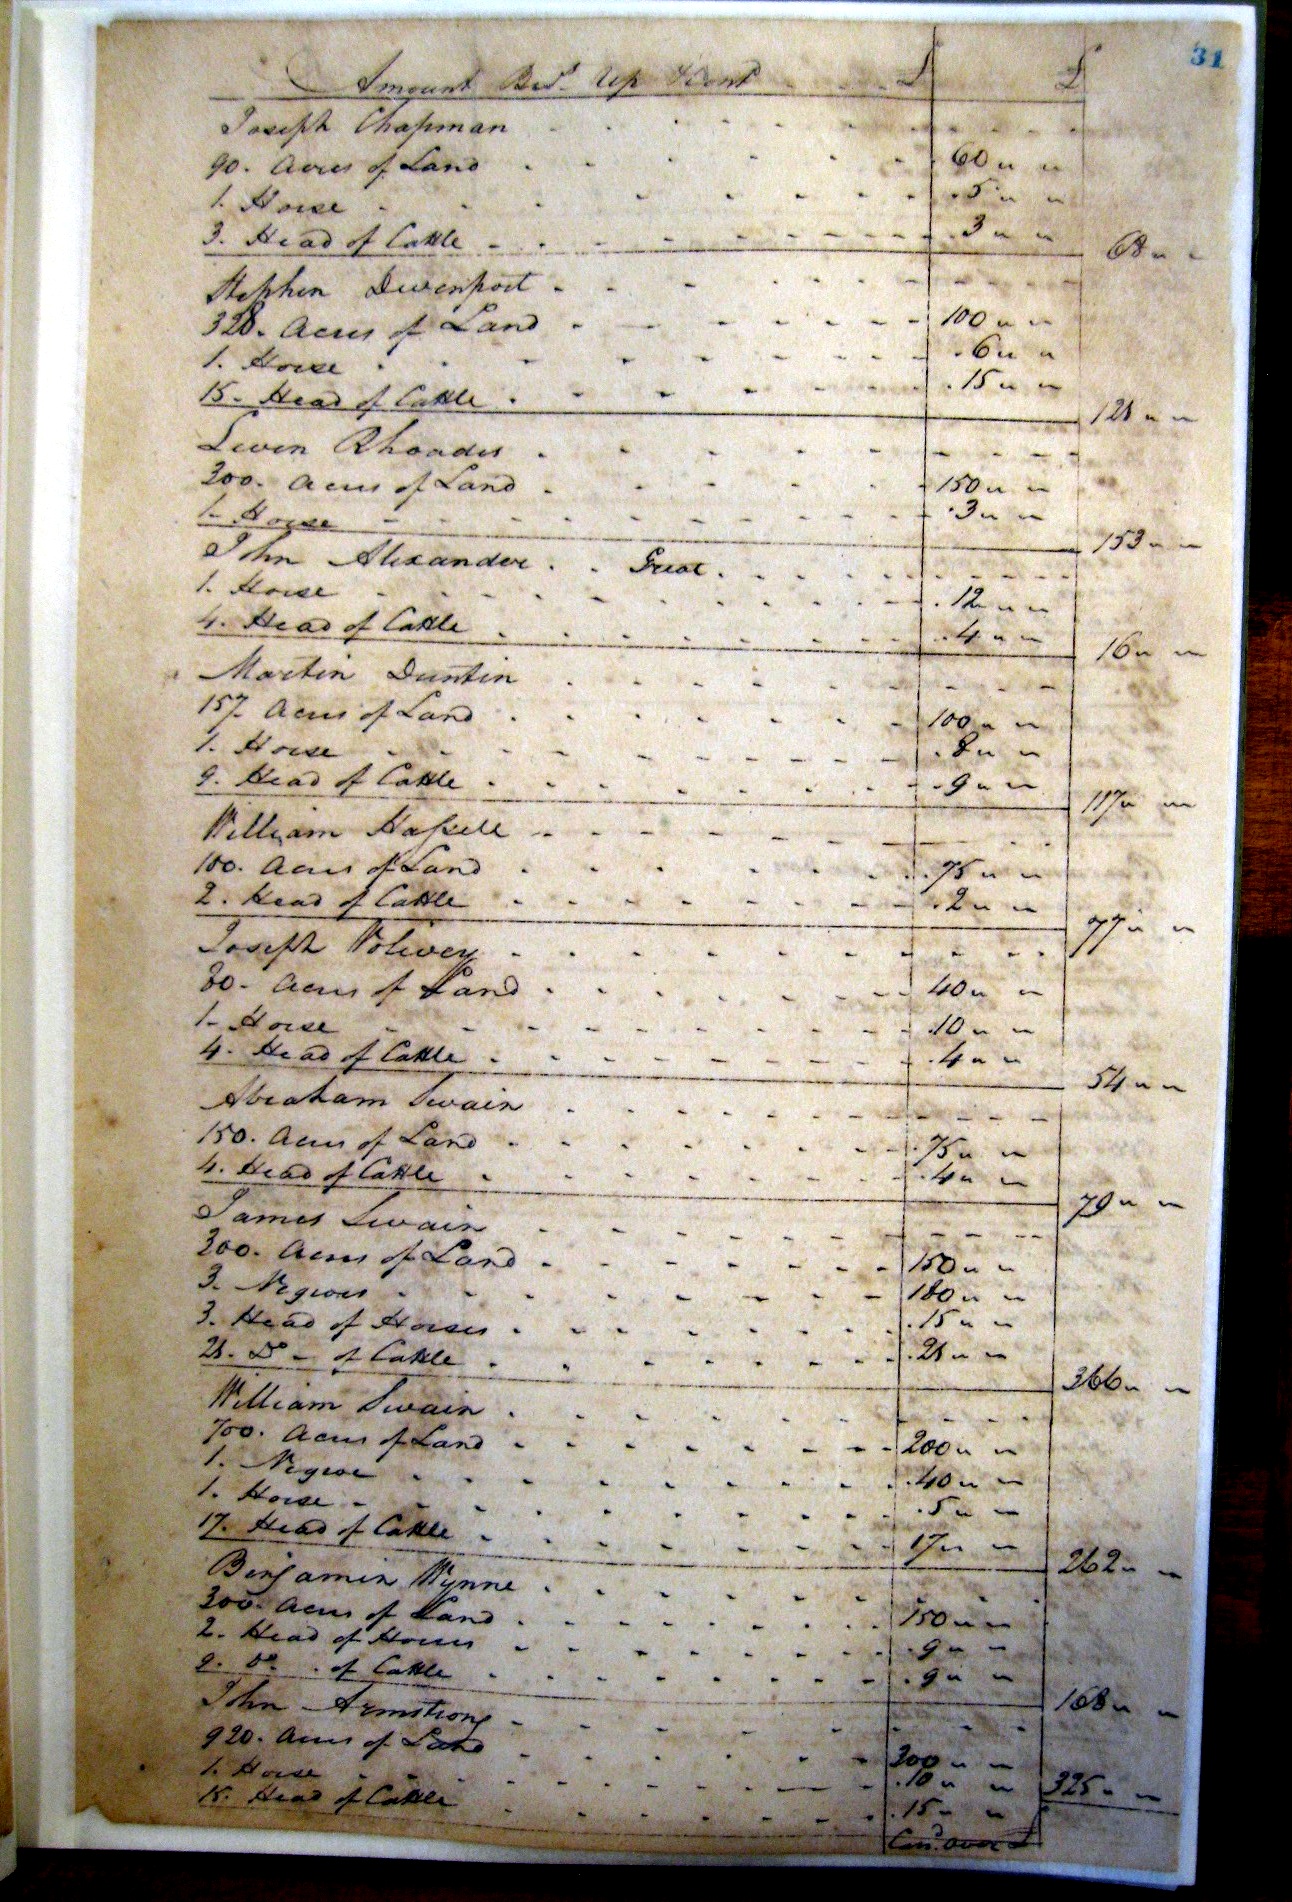 31
Amount Bro.t Up & Cont £ £
Joseph Chapman
90. Acres of Land 60 〃 〃
1. Horse 5 〃 〃
3. Head of Cattle 3 〃 〃
68 〃 〃
Stephen Devenport
328. Acres of Land 100 〃 〃
1. Horse 6 〃 〃
15. Head of Cattle 15 〃 〃
121 〃 〃
Leven Rhoades
300. Acres of Land 150 〃 〃
1. Horse 3 〃 〃
153 〃 〃
John Alexander Great
1. Horse 12 〃 〃
4. Head of Cattle 4 〃 〃
16 〃 〃
Martin Duntin
157. Acres of Land 100 〃 〃
1. Horse 8 〃 〃
9. Head of Cattle 9 〃 〃
117 〃 〃
William Hassell
100. Acres of Land 75 〃 〃
2. Head of Cattle 2 〃 〃
77 〃 〃
Joseph Volivey
80. Acres of Land 40 〃 〃
1. Horse 10 〃 〃
4. Head of Cattle 4 〃 〃
54 〃 〃
Abraham Swain
150. Acres of Land 75 〃 〃
4. Head of Cattle 4 〃 〃
79 〃 〃
James Swain
300. Acres of Land 150 〃 〃
3. Negroes 180 〃 〃
3. Head of Horses 15 〃 〃
21. Do of Cattle 21 〃 〃
366 〃 〃
William Swain
700. Acres of Land 200 〃 〃
1. Negroe 40 〃 〃
1. Horse 5 〃 〃
17. Head of Cattle 17 〃 〃
262 〃 〃
Benjamin Wynne
300. Acres of Land 150 〃 〃
2. Head of Horses 9 〃 〃
9. Do. of Cattle 9 〃 〃
168 〃 〃
John Armstrong
920. Acres of Land 300 〃 〃
1. Horse 10 〃 〃
15. Head of Cattle 15 〃 〃
325 〃 〃
Car.d over £